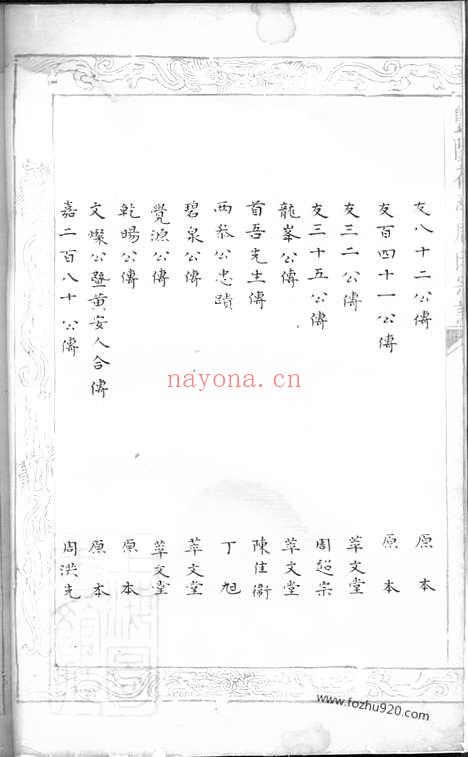 友八十二公傳 原本
友百四十一公傳 原本
友三二公傳 萃文堂
友三十五公傳 周超崇
龍峯公傳 萃文堂
首吾先生傳 陳仕衢
西泰公忠蹟 丁旭
碧泉公傳 萃文堂
覺源公傳 萃文堂
乾暘公傳 原本
文燦公暨黄安人合傳 原本
嘉二百八十公傳 周洪先
nayona.cn
www.fozhu920.com